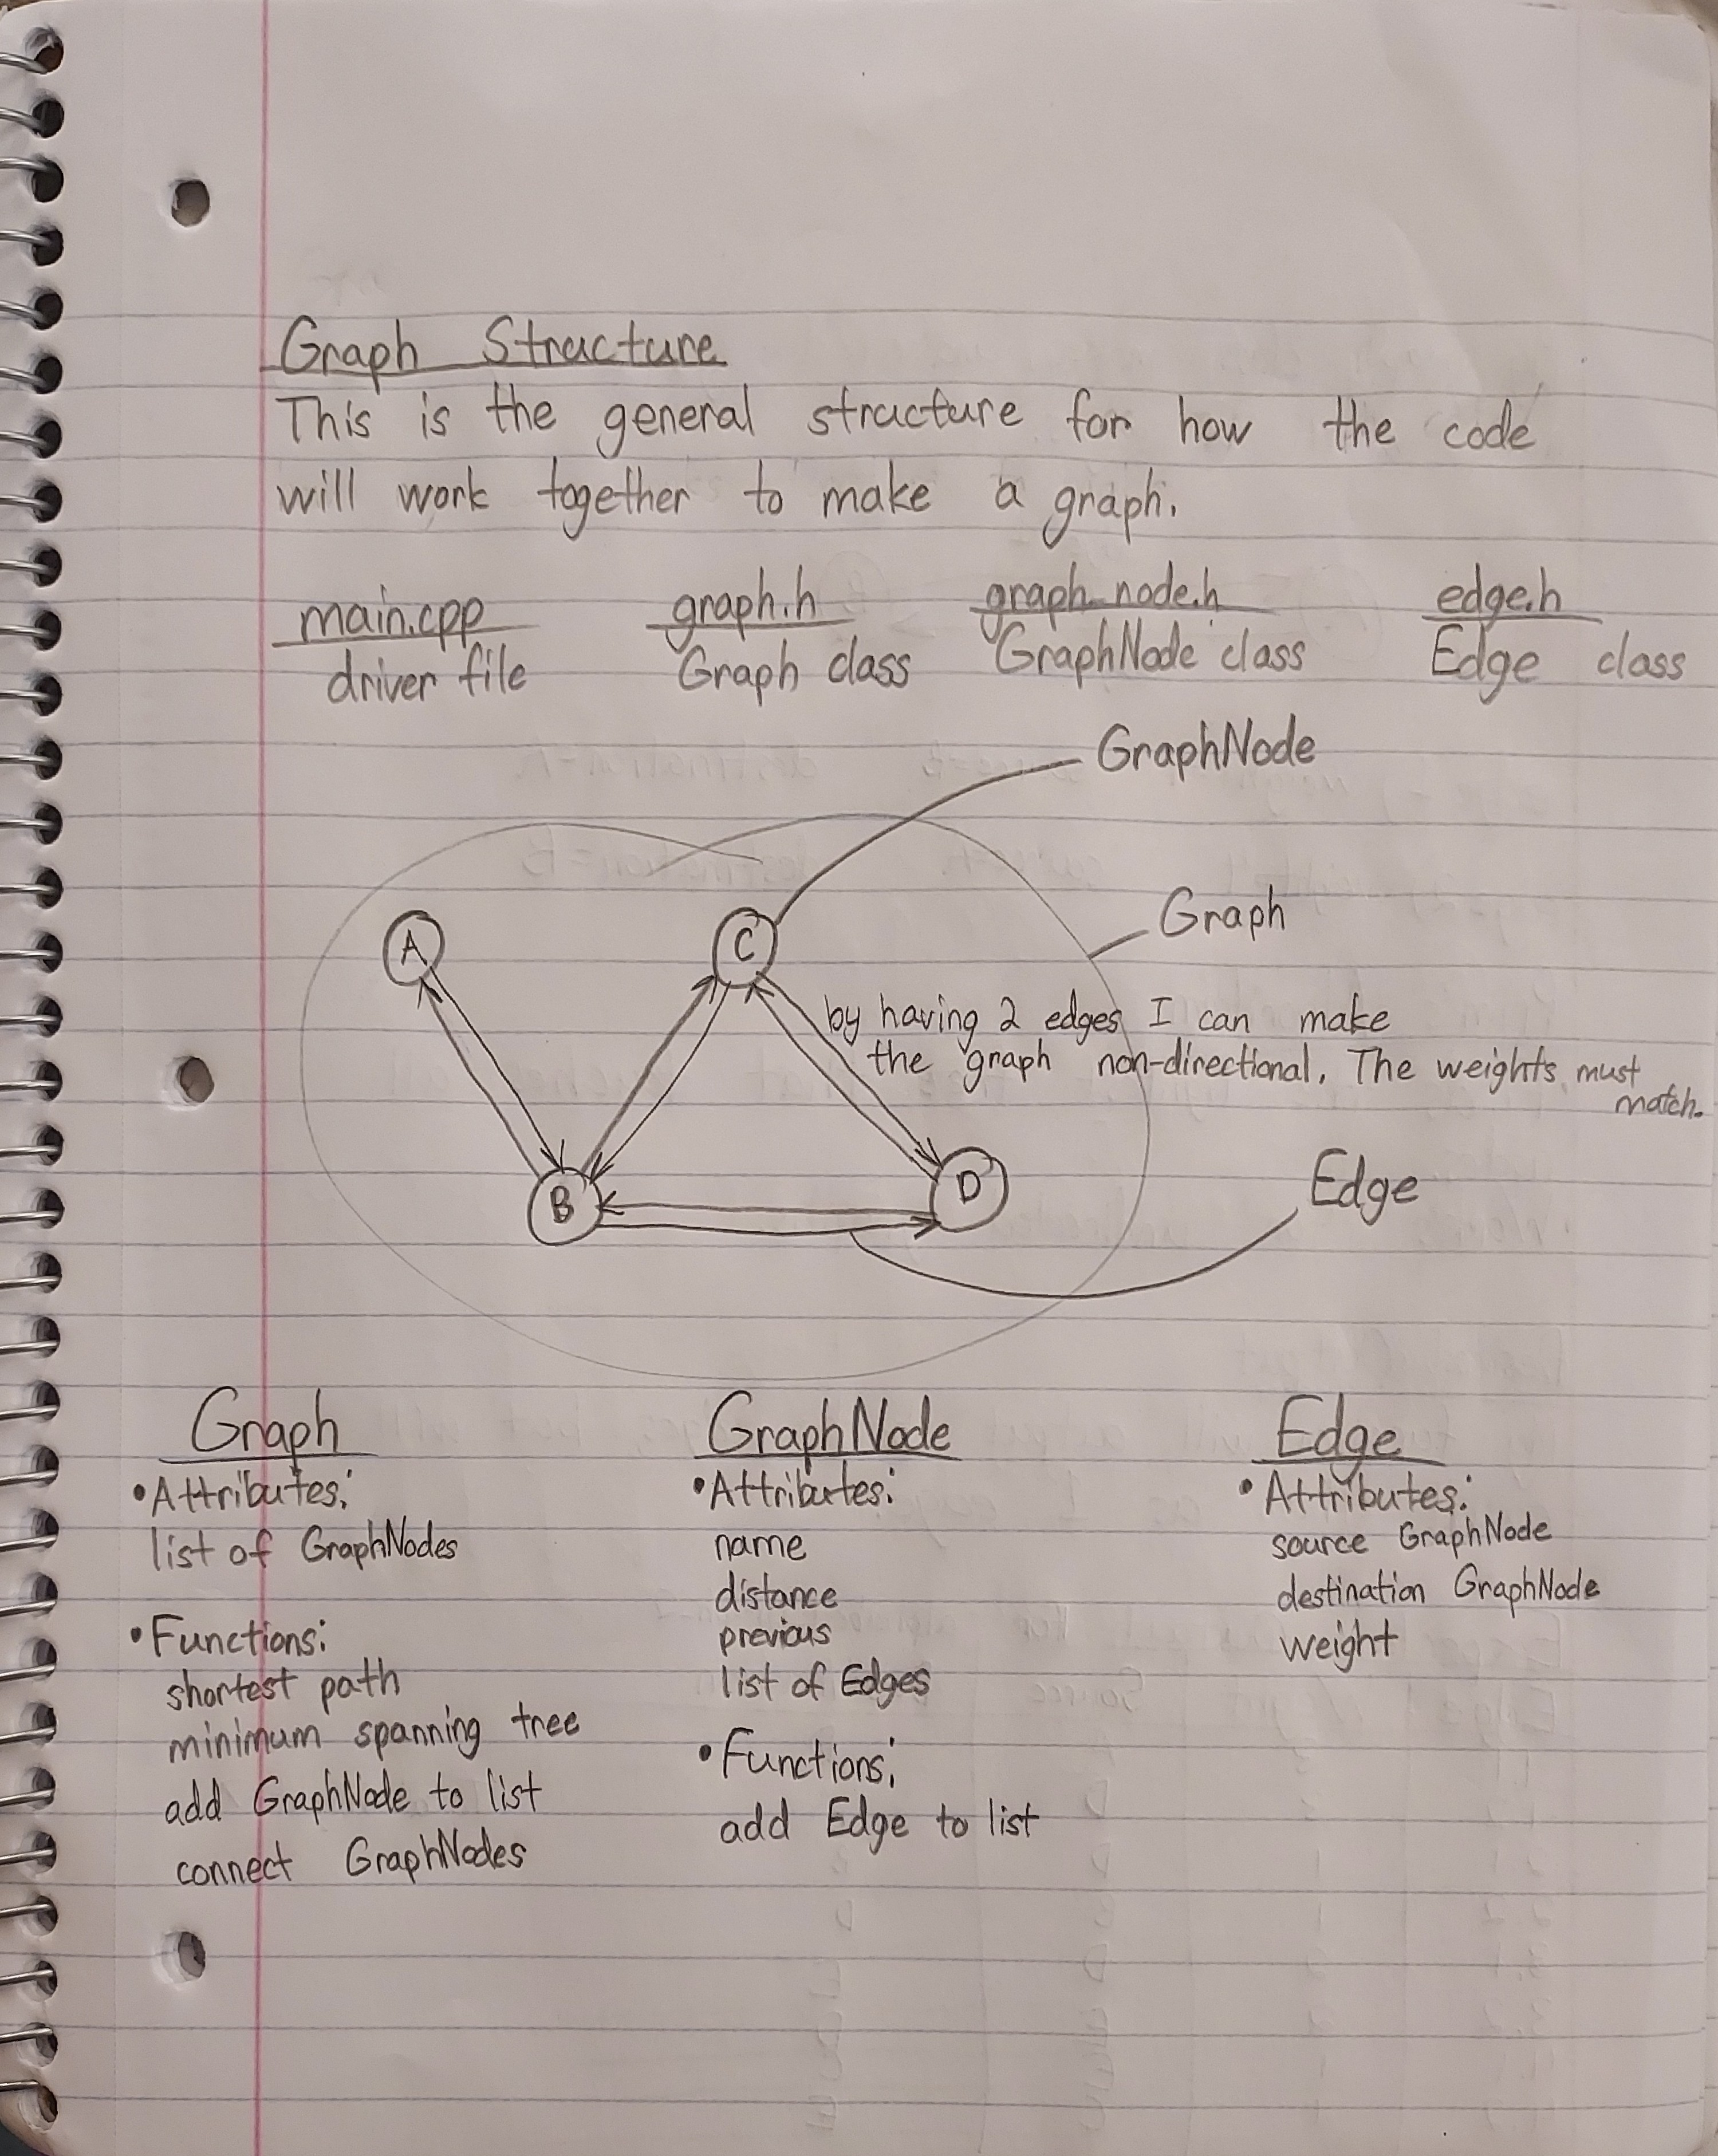 Graph Structure
This is the general structure for how the code
will work together to make a graph.
main.cpp
driver file
graph.h
Graph class
graph_node.h
GraphNode class
edge.h
Edge class
GraphNode
Graph
A
C
by having 2 edges I can make
the graph non-directional. The weights must
match.
B
D
Edge
Graph
• Attributes:
list of GraphNodes
• Functions:
shortest path
minimum spanning tree
add GraphNode to list
connect GraphNodes
GraphNode
• Attributes:
name
distance
previous
list of Edges
• Functions:
add Edge to list
Edge
• Attributes:
source GraphNode
destination GraphNode
weight